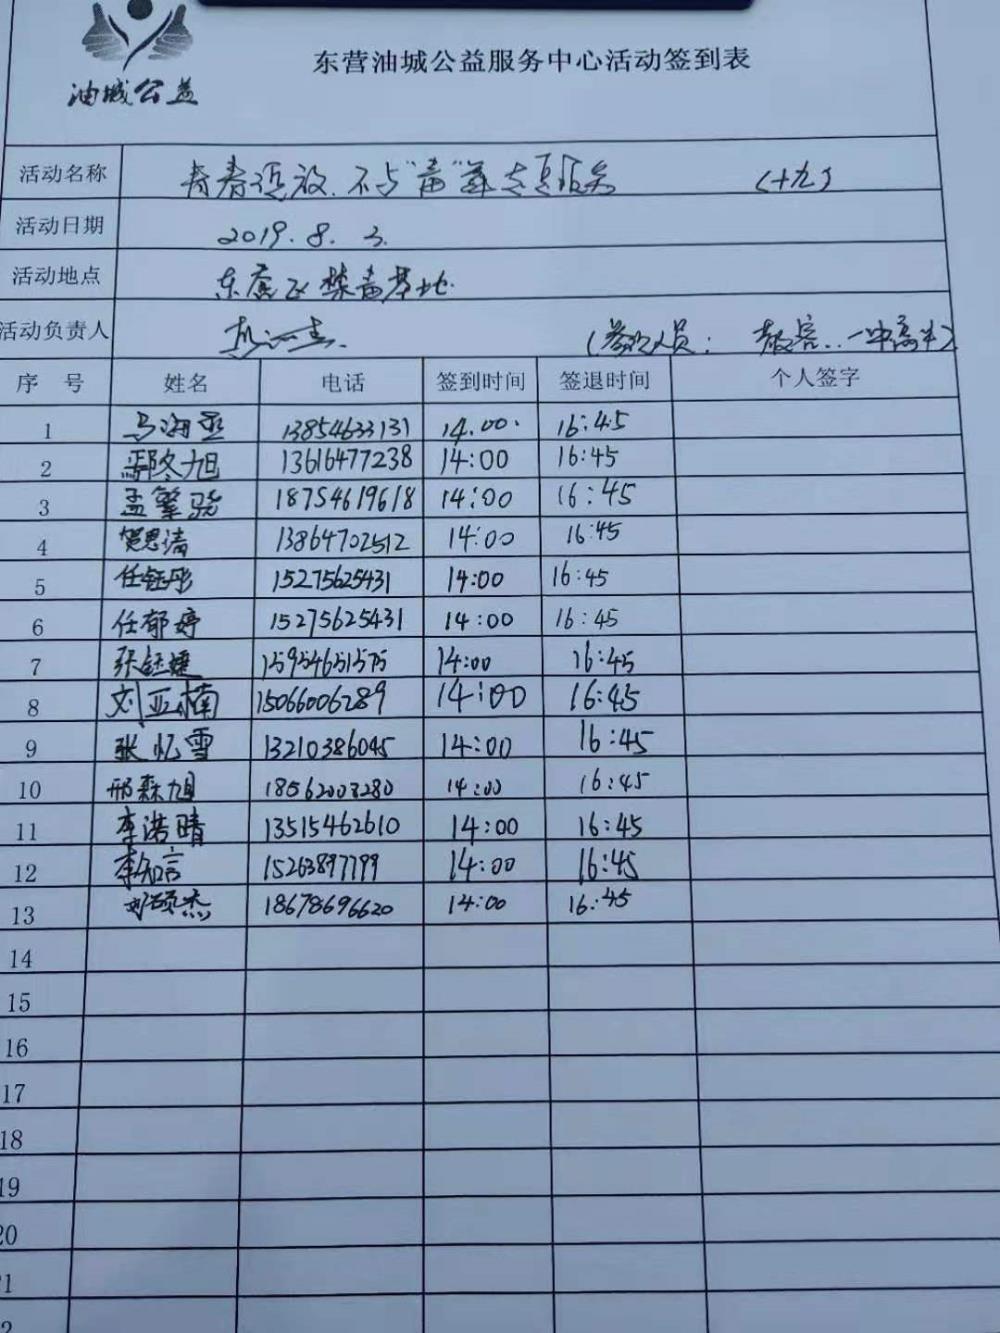 油城公益
东营油城公益服务中心活动签到表
活动名称 青春绽放.不与"毒"舞 (十九)
活动日期 2019.8.3.
活动地点 东营区禁毒基地.
活动负责人 (参加人员:
序号 姓名 电话 签到时间 签退时间 个人签字
1 马海丞 13854633131 14.00. 16:45
2 鄢冬旭 13616477238 14:00 16:45
3 孟繁骁 18754619618 14:00 16:45
4 贺思清 13864702512 14:00 16:45
5 任钰彤 15275625431 14:00 16:45
6 任郁婷 15275625431 14:00 16:45
7 张钰婕 15954651575 14:00 16:45
8 刘亚楠 15066006289 14:00 16:45
9 张忆雪 13210386045 14:00 16:45
10 邢森旭 18562003280 14:00 16:45
11 李浩晴 13515462610 14:00 16:45
12 李知言 15263897799 14:00 16:45
13 刘硕杰 18678696620 14:00 16:45
14
15
16
17
18
19
20